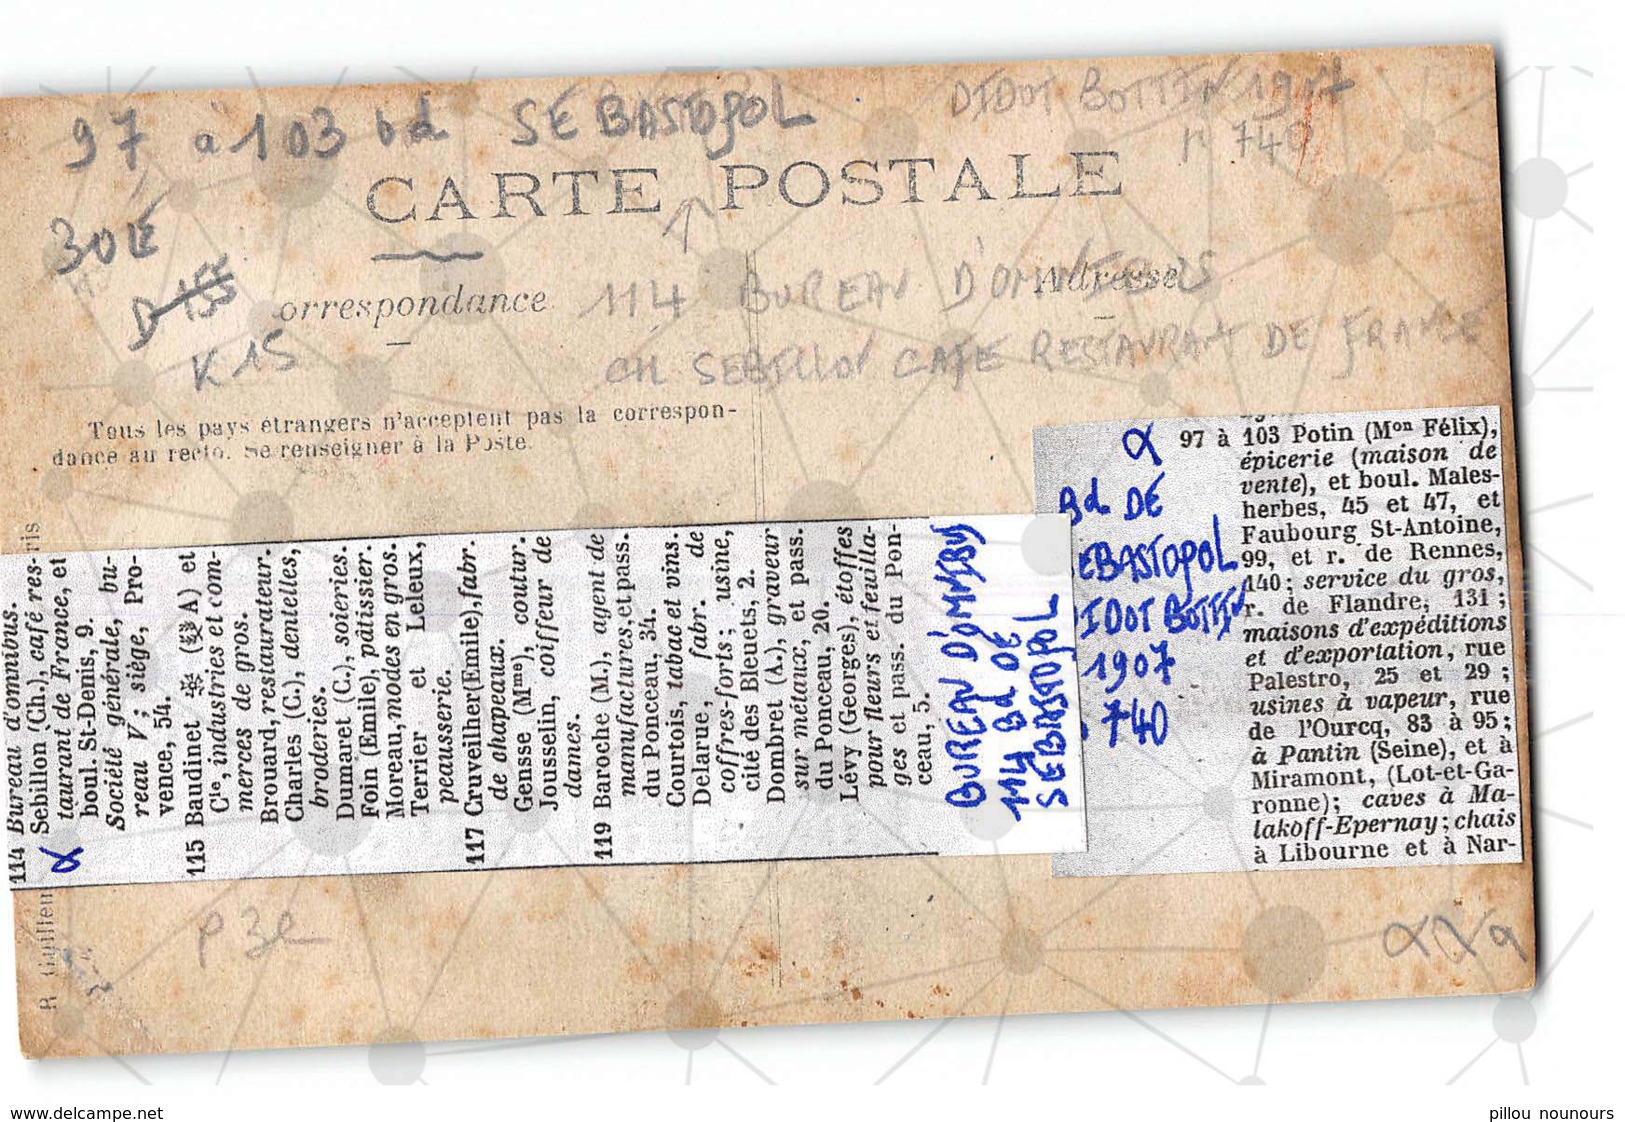 97 à 103 bd SEBASTOPOL
DIDOT BOTTIN 1907
740
CARTE POSTALE
30E
D 155
K 15
orrespondance
Adresse
114 BUREAU D'OMNIBUS
CH SEBILLON CAFE RESTAURANT DE FRANCE
Tous les pays étrangers n'acceptent pas la correspon-
dance au recto. Se renseigner à la Poste.
α
Bd DE
EBASTOPOL
IDOT BOTTIN
1907
740
97 à 103 Potin (Mon Félix),
épicerie (maison de
vente), et boul. Males-
herbes, 45 et 47, et
Faubourg St-Antoine,
99, et r. de Rennes,
140; service du gros,
r. de Flandre, 131;
maisons d'expéditions
et d'exportation, rue
Palestro, 25 et 29;
usines à vapeur, rue
de l'Ourcq, 83 à 95;
à Pantin (Seine), et à
Miramont, (Lot-et-Ga-
ronne); caves à Ma-
lakoff-Epernay; chais
à Libourne et à Nar-
114 Bureau d'omnibus.
α Sebillon (Ch.), café res-
taurant de France, et
boul. St-Denis, 9.
Société générale, bu-
reau V; siège, Pro-
vence, 54.
115 Baudinet ❋ (A) et
Cie, industries et com-
merces de gros.
Brouard, restaurateur.
Charles (G.), dentelles,
broderies.
Dumaret (C.), soieries.
Foin (Emile), pâtissier.
Moreau, modes en gros.
Terrier et Leleux,
peausserie.
117 Cruveilher (Emile), fabr.
de chapeaux.
Gensse (Mme), coutur.
Jousselin, coiffeur de
dames.
119 Baroche (M.), agent de
manufactures, et pass.
du Ponceau, 34.
Courtois, tabac et vins.
Delarue, fabr. de
coffres-forts; usine,
cité des Bleuets, 2.
Dombret (A.), graveur
sur métaux, et pass.
du Ponceau, 20.
Lévy (Georges), étoffes
pour fleurs et feuilla-
ges et pass. du Pon-
ceau, 5.
BUREAU D'OMNIBUS
114 Bd DE
SEBASTOPOL
ris
www.delcampe.net
pillou nounours